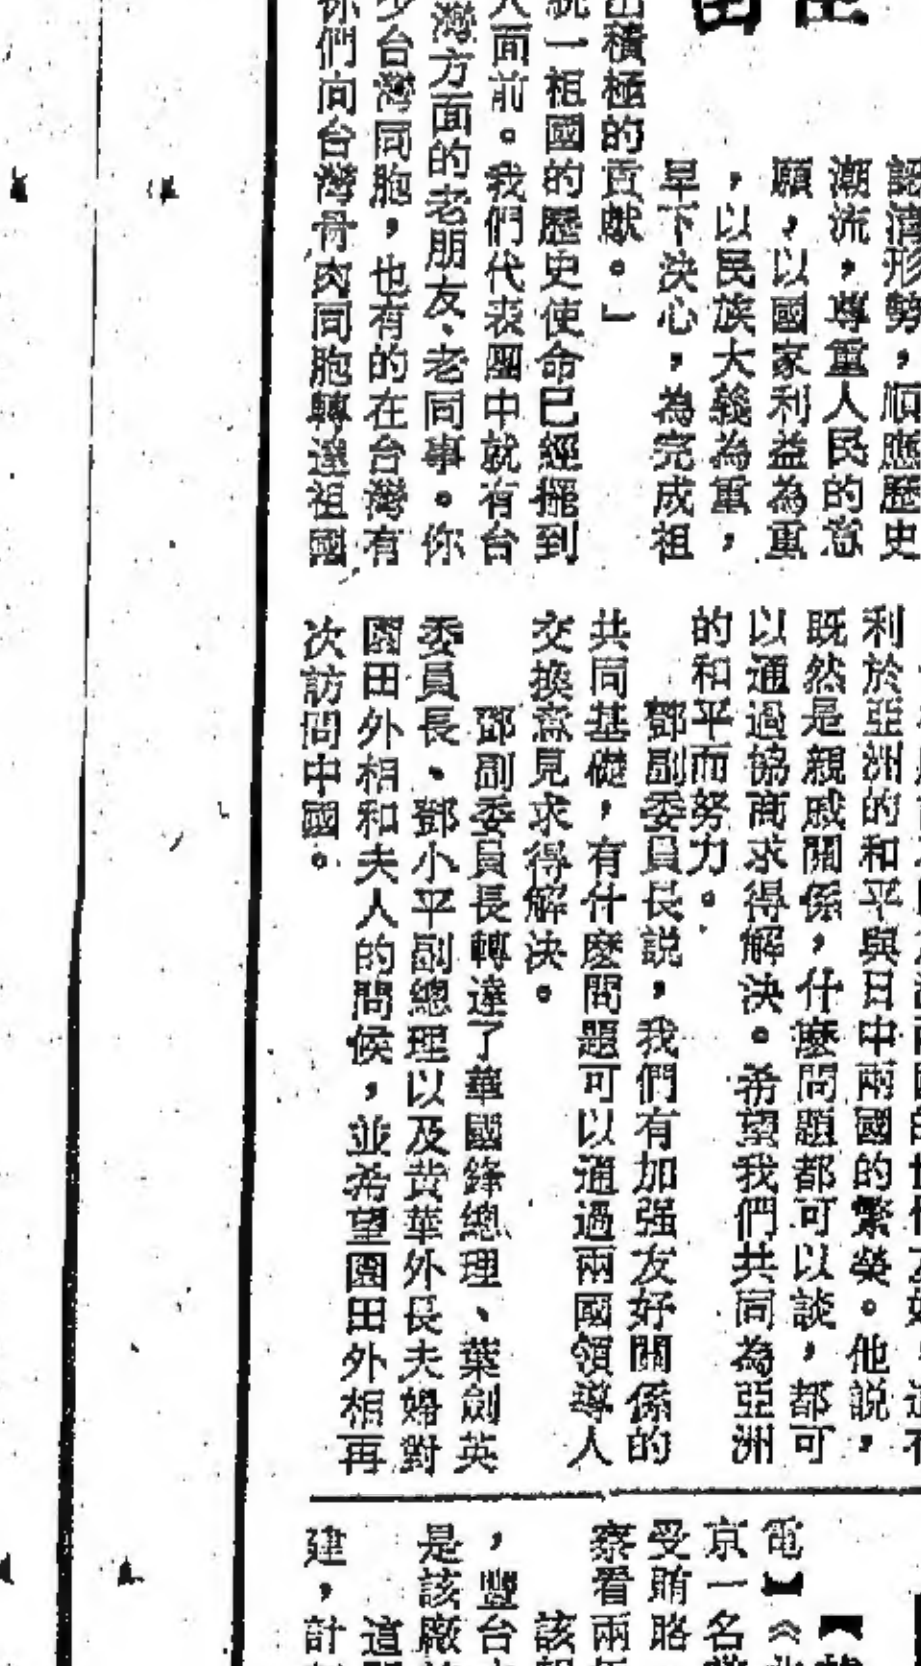 認清形勢,順應歷史
潮流,尊重人民的意
願,以國家利益為重
,以民族大義為重,
早下決心,為完成祖
出積極的貢獻。」
統一祖國的歷史使命已經擺到
人面前。我們代表團中就有台
灣方面的老朋友、老同事。你
少台灣同胞,也有的在台灣有
你們向台灣骨肉同胞轉達祖國
利於亞洲的和平與日中兩國的繁榮。他説,
既然是親戚關係,什麼問題都可以談,都可
以通過協商求得解決。希望我們共同為亞洲
的和平而努力。
鄧副委員長説,我們有加强友好關係的
共同基礎,有什麼問題可以通過兩國領導人
交換意見求得解決。
鄧副委員長轉達了華國鋒總理、葉劍英
委員長、鄧小平副總理以及黄華外長夫婦對
園田外相和夫人的問候,並希望園田外相再
次訪問中國。
【
電】《
京一名
受賄賂
察看兩
該
,豐台
是該廠
這
建,計